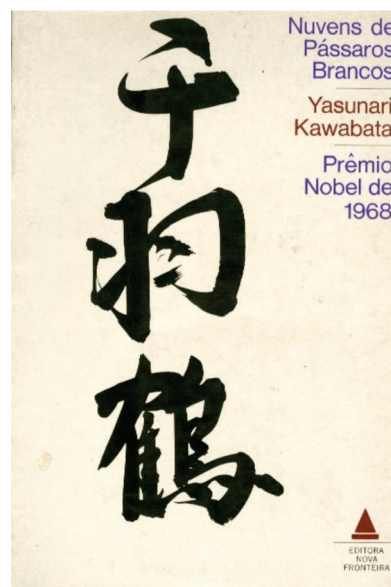 千羽鶴
Nuvens de
Pássaros
Brancos
Yasunari
Kawabata
Prêmio
Nobel de
1968
EDITORA
NOVA
FRONTEIRA